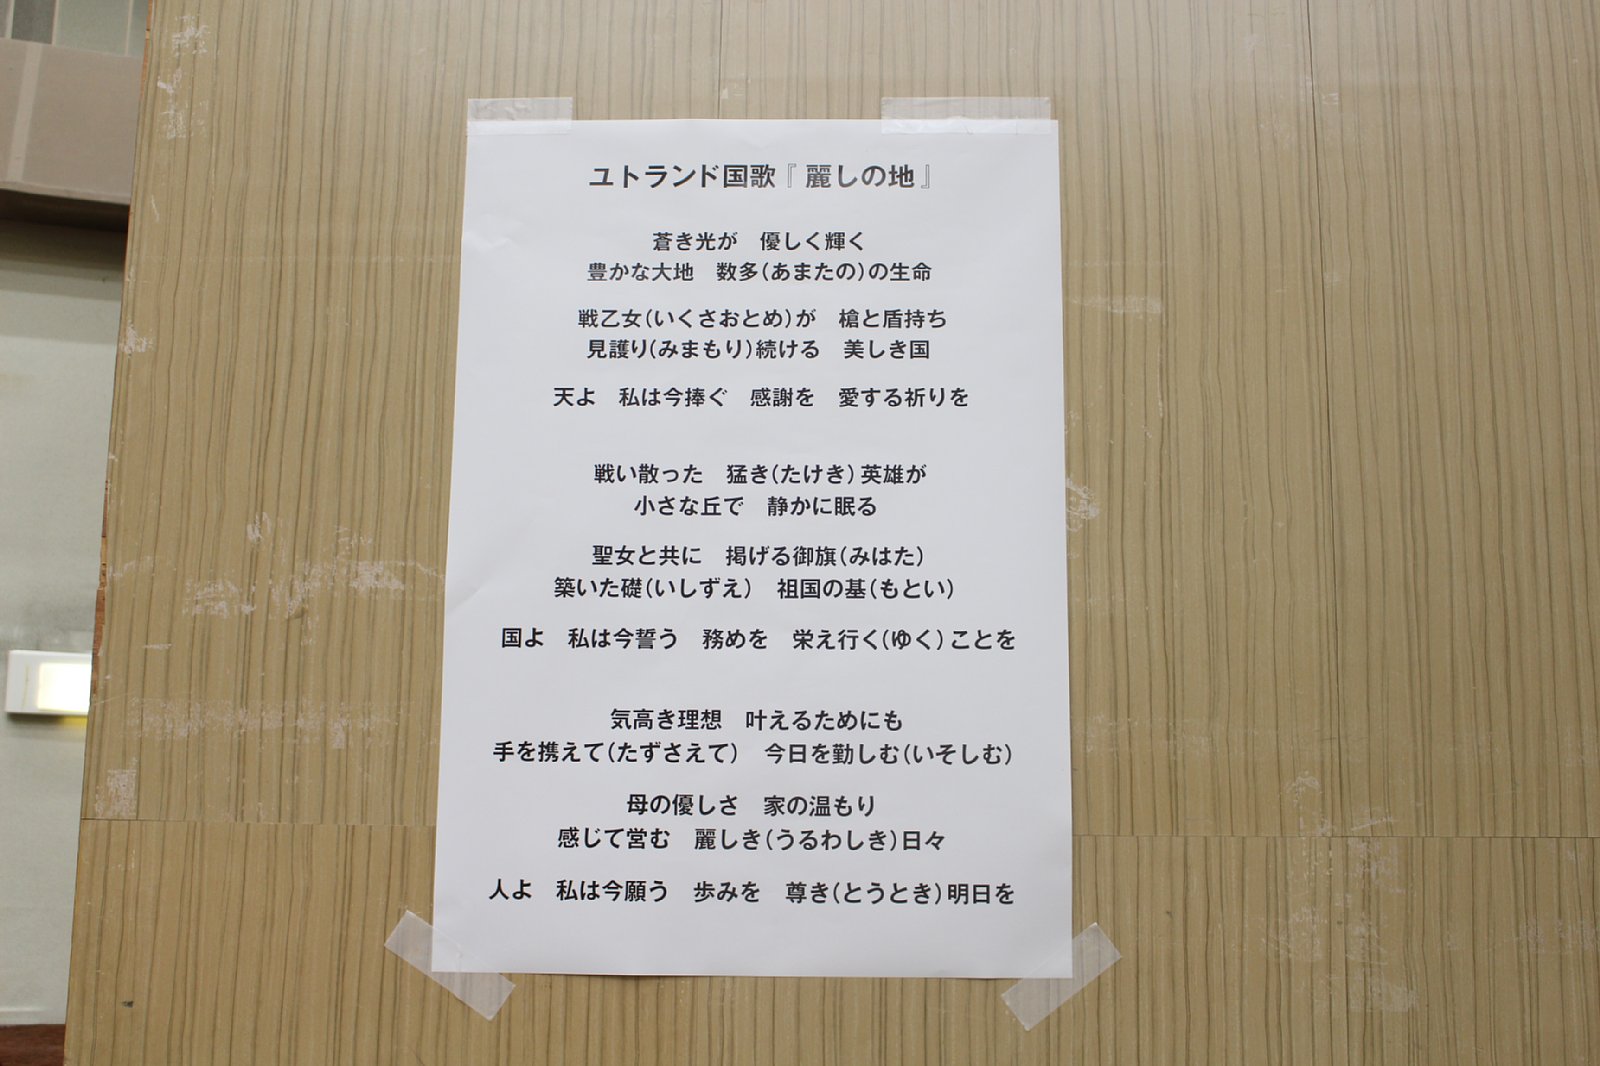 ユトランド国歌『麗しの地』
蒼き光が　優しく輝く
豊かな大地　数多(あまたの)の生命
戦乙女(いくさおとめ)が　槍と盾持ち
見護り(みまもり)続ける　美しき国
天よ　私は今捧ぐ　感謝を　愛する祈りを
戦い散った　猛き(たけき)英雄が
小さな丘で　静かに眠る
聖女と共に　掲げる御旗(みはた)
築いた礎(いしずえ)　祖国の基(もとい)
国よ　私は今誓う　務めを　栄え行く(ゆく)ことを
気高き理想　叶えるためにも
手を携えて(たずさえて)　今日を勤しむ(いそしむ)
母の優しさ　家の温もり
感じて営む　麗しき(うるわしき)日々
人よ　私は今願う　歩みを　尊き(とうとき)明日を